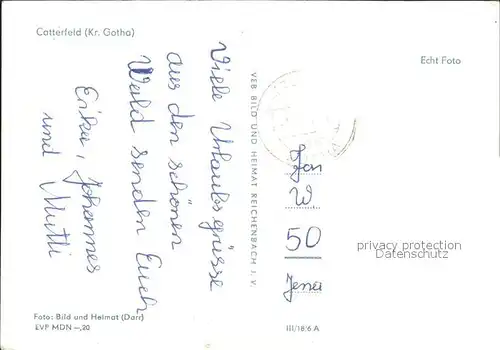 Catterfeld (Kr. Gotha)
Echt Foto
Viele Urlaubsgrüsse
aus den schönen
Wald senden Euch
Erika, Johannes
und Mutti
VEB BILD UND HEIMAT REICHENBACH I. V.
W
50
Jena
privacy protection
Datenschutz
Foto: Bild und Heimat (Darr)
EVP MDN –,20
III/18/6 A